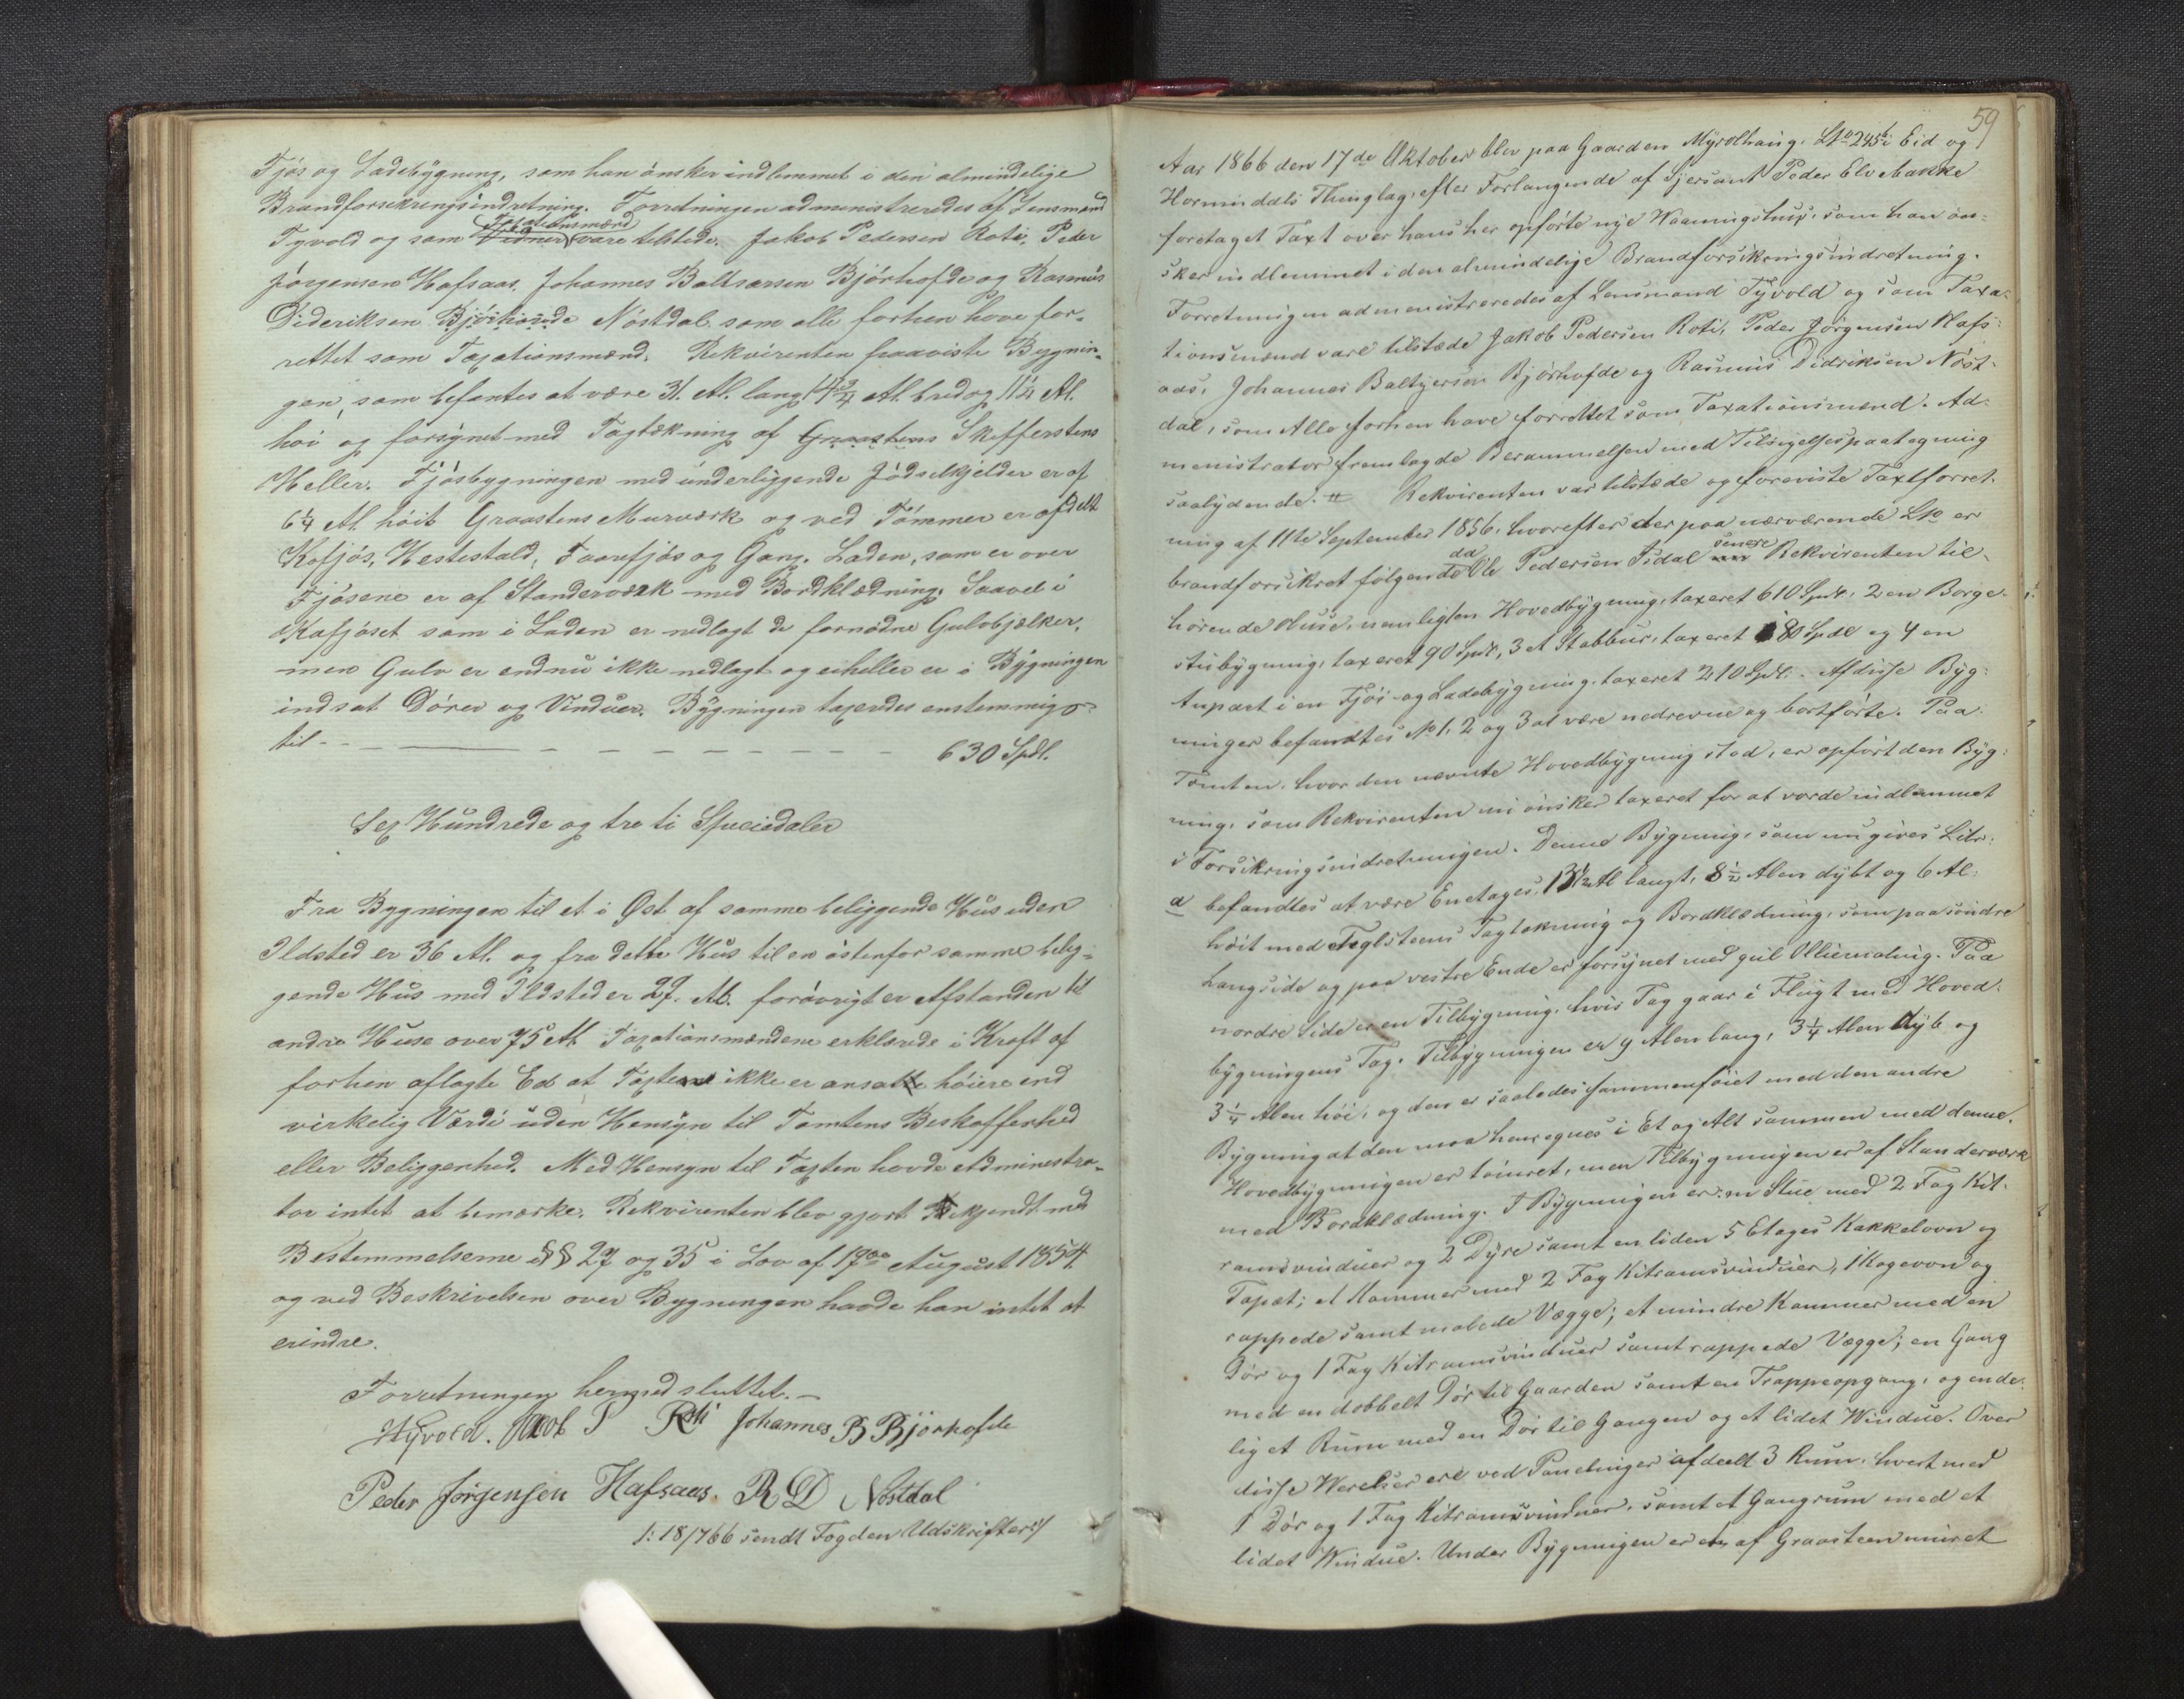 Fjøs og Ladebygning, som han ønsker indlemmet i den almindelige
Brandforsikringsindretning. Forretningen administreredes af Lensmand
Taxationsmænd
Tyvold og som Vidner vare tilstede. Jakob Pedersen Roti, Peder
Jørgensen Hafsaas, Johannes Baltsersen Bjørhofde og Rasmus
Dideriksen Bjørhovde Nøstdal som alle forhen have for-
rettet som Taxationsmænd. Rekvirenten paaviste Bygnin-
gen, som befantes at være 31 Al. lang 14 3/4 Al. bred og 11 1/4 Al.
høi og forsynet med Tagtækning af Graastens Skifferstens
Heller. Fjøsbygningen med underliggende Gjødselkjelder er af
6 1/4 Al. høit Graastens Murværk og ved Tømmer er afdelt
Kofjøs, Hestestald, Faarefjøs og Gang. Laden, som er over
Fjøsene er af Standerværk med Bordklædning. Saavel i
Kofjøset som i Laden er nedlagt de fornødne Gulvbjelker,
men Gulv er endnu ikke nedlagt og eiheller er i Bygningen
indsat Dører og Vinduer. Bygningen taxeredes enstemmig
til - - - - - - - - - 630 Spdl.
Sex Hundrede og tre ti Speciedaler
Fra Bygningen til et i Øst af samme beliggende Hus uden
Ildsted er 36 Al. og fra dette Hus til en østenfor samme belig-
gende Hus med Ildsted er 27. Al. forøvrigt er Afstanden til
andre Huse over 75 Al. Taxationsmændene erklærede i Kraft af
forhen aflagte Ed at Taxten ikke er ansatte høiere end
virkelig Værdi uden Hensyn til Tomtens Beskaffenhed
eller Beliggenhed. Med Hensyn til Taxten havde Administra-
tor intet at bemærke. Rekvirenten blev gjort bekjendt med
Bestemmelserne §§ 27 og 35 i Lov af 17de August 1854
og ved Beskrivelsen over Bygningen havde han intet at
erindre.
Forretningen hermed sluttet. -
HTyvold. Jacob P Roti Johannes B Bjørhofde
Peder Jørgensen Hafsaas. R D Nøstdal
/: 18/7 66 sendt Fogden Udskrifter :/
59
Aar 1866 den 17de Oktober blev paa Gaarden Myrolhaug, Lno 245b i Eid og
Hornindals Thinglag, efter Forlangende af Sjersant Peder Elvebakke
foretaget Taxt over hans her opførte nye Vaaningshus, som han øn-
sker indlemmet i den almindelige Brandforsikringsindretning.
Forretningen administreredes af Lensmand Tyvold og som Taxa-
tionsmænd vare tilstæde Jakob Pedersen Roti, Peder Jørgensen Hafs-
aas, Johannes Baltzersen Bjørhofde og Rasmus Didriksen Nøst-
dal, som Alle forhen have forrettet som Taxationsmænd. Ad-
ministrator fremlagde Berammelsen med Tilsigelsespaategning
saalydende. # Rekvirenten var tilstæde og foreviste Taxtforret-
ning af 11te September 1856, hvorefter der paa nærværende Lno er
da senere
brandforsikret følgende Ole Pedersen Isdal nu Rekvirenten til-
hørende Huse, nemlig 1 en Hovedbygning, taxeret 610 Spdl, 2 en Borge-
stubygning, taxeret 90 Spdl, 3 et Stabbur, taxeret 80 Spdl og 4 en
Anpart i en Fjøs- og Ladebygning, taxeret 210 Spdl. - Af disse Byg-
ninger befandtes No 1, 2 og 3 at være nedrevne og bortførte. Paa
Tomten, hvor den nævnte Hovedbygning stod, er opført den Byg-
ning, som Rekvirenten nu ønsker taxeret for at vorde indlemmet
i Forsikringsindretningen. Denne Bygning, som nu gives Litr.
a befandtes at være Enetages, 13 1/2 Al langt, 8 1/2 Alen dybt og 6 Al.
høit med Teglsteens Tagtekning og Bordklædning, som paa søndre
Langside og paa vestre Ende er forsynet med gul Olliemaling. Paa
nordre Side er en Tilbygning, hvis Tag gaar i Flugt med Hoved-
bygningens Tag. Tilbygningen er 9 Alen lang, 3 1/4 Alen dyb og
3 1/4 Alen høi, og den er saaledes sammenføiet med den andre
Bygning at den maa henregnes i Et og Alt sammen med denne.
Hovedbygningen er tømret, men Tilbygningen er af Standerværk
med Bordklædning. I Bygningen er: en Stue med 2 Fag Kit-
ramsvinduer og 2 Dyre samt en liden 5 Etages Kakkelovn og
Tapet; et Kammer med 2 Fag Kitramsvinduer, 1 Kogeovn og
rappede samt malede Vægge; et mindre Kammer med en
Dør og 1 Fag Kitramsvinduer samt rappede Vægge; en Gang
med en dobbelt Dør til Gaarden samt en Trappeopgang, og ende-
lig et Rum med en Dør til Gangen og et lidet Vindue. Over
disse Værelser ere ved Panelinger afdeelt 3 Rum, hvert med
1 Dør og 1 Fag Kitramsvinduer, samt et Gangrum med et
lidet Vindue. Under Bygningen er en af Graasteen muret